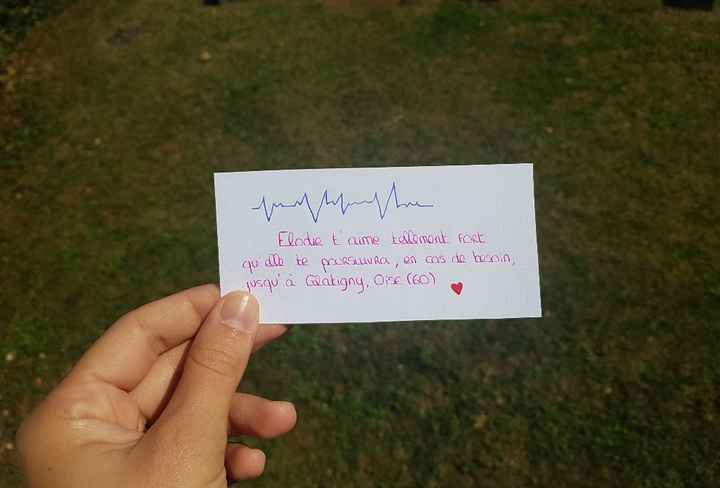 Elodie t'aime tellement fort
qu'elle te poursuivra, en cas de besoin,
jusqu'à Glatigny, Oise (60)